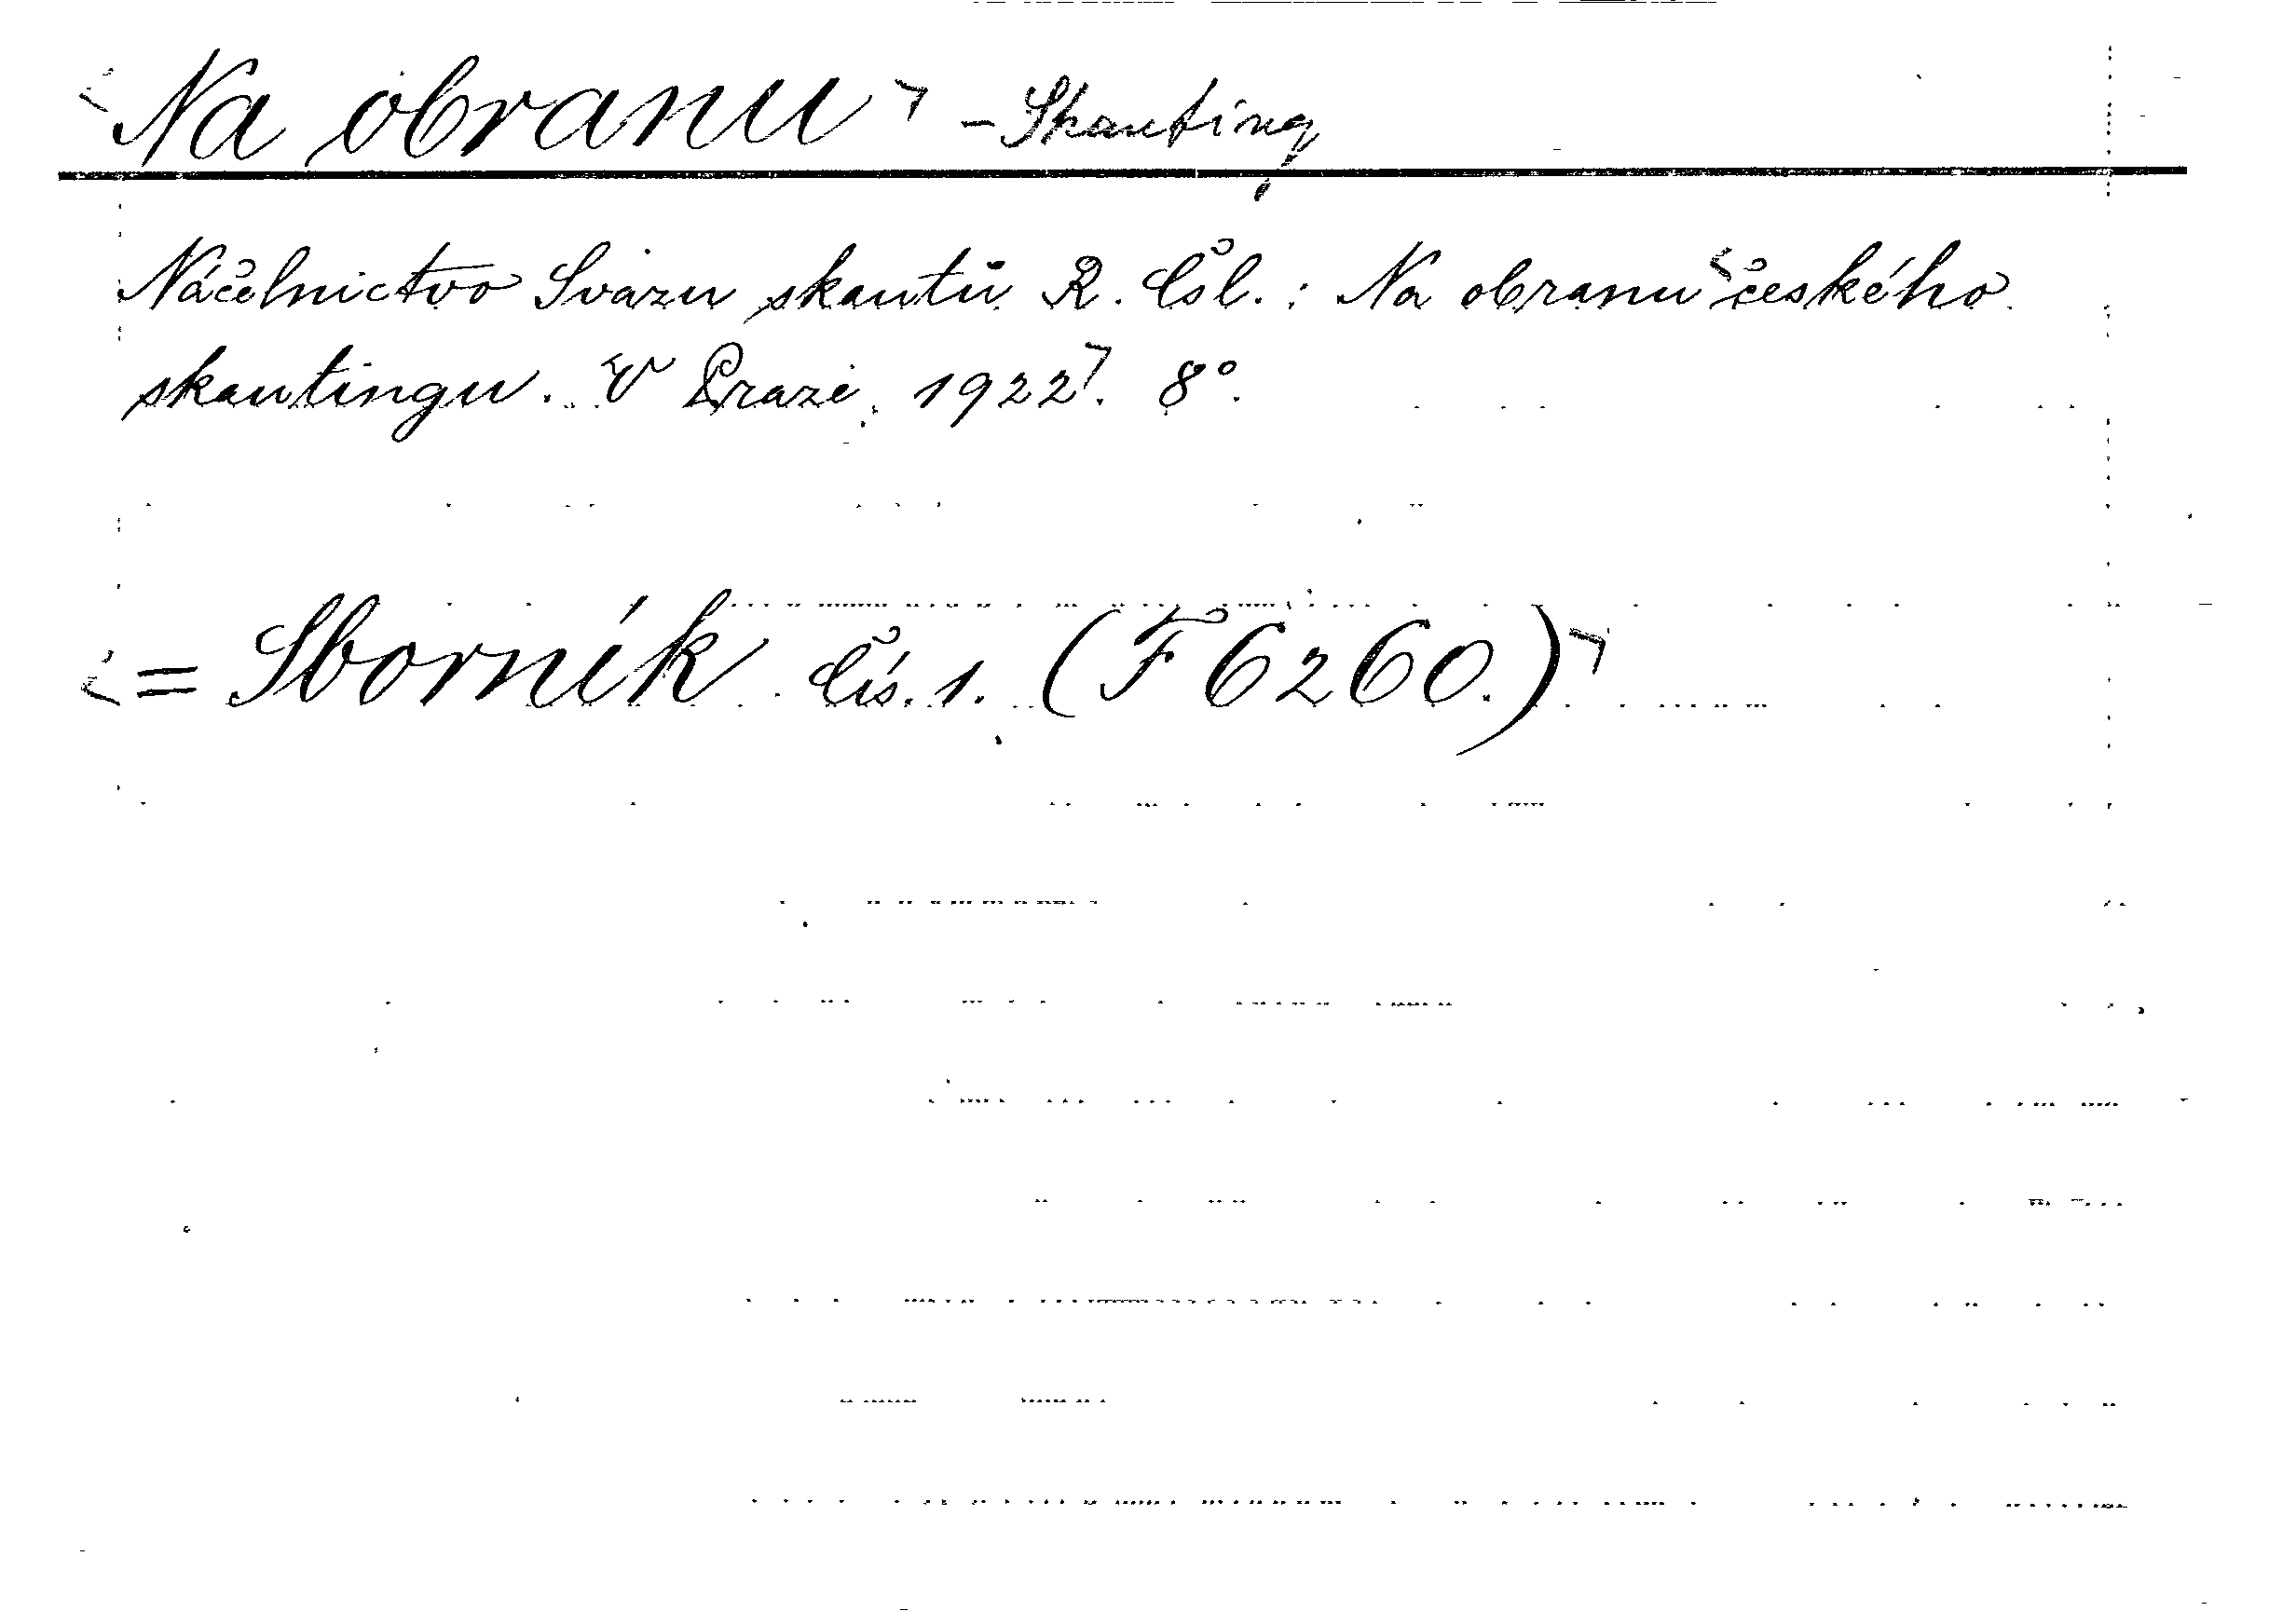 Na obranu - Skauting
Náčelnictvo Svazu skautů R. Čsl.: Na obranu českého
skautingu. V Praze, 1922. 8°.
= Sborník Čís. 1. (F 6260.)